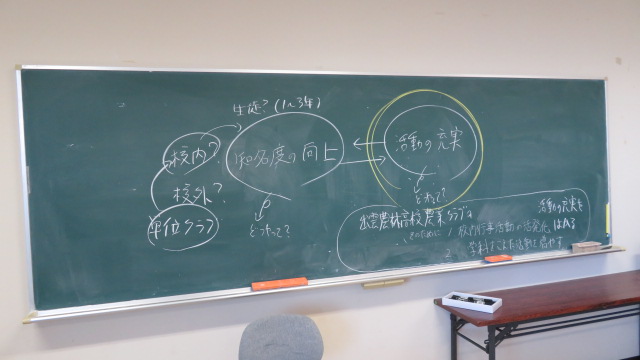 生徒?(1~3年)
校内?
知名度の向上
活動の充実
校外?
単位クラブ
どうやって?
どうやって?
出雲農林高校農業クラブの
活動の充実を
はかる
そのために
1 校内行事活動の活発化
2 学科をこえた活動を増やす